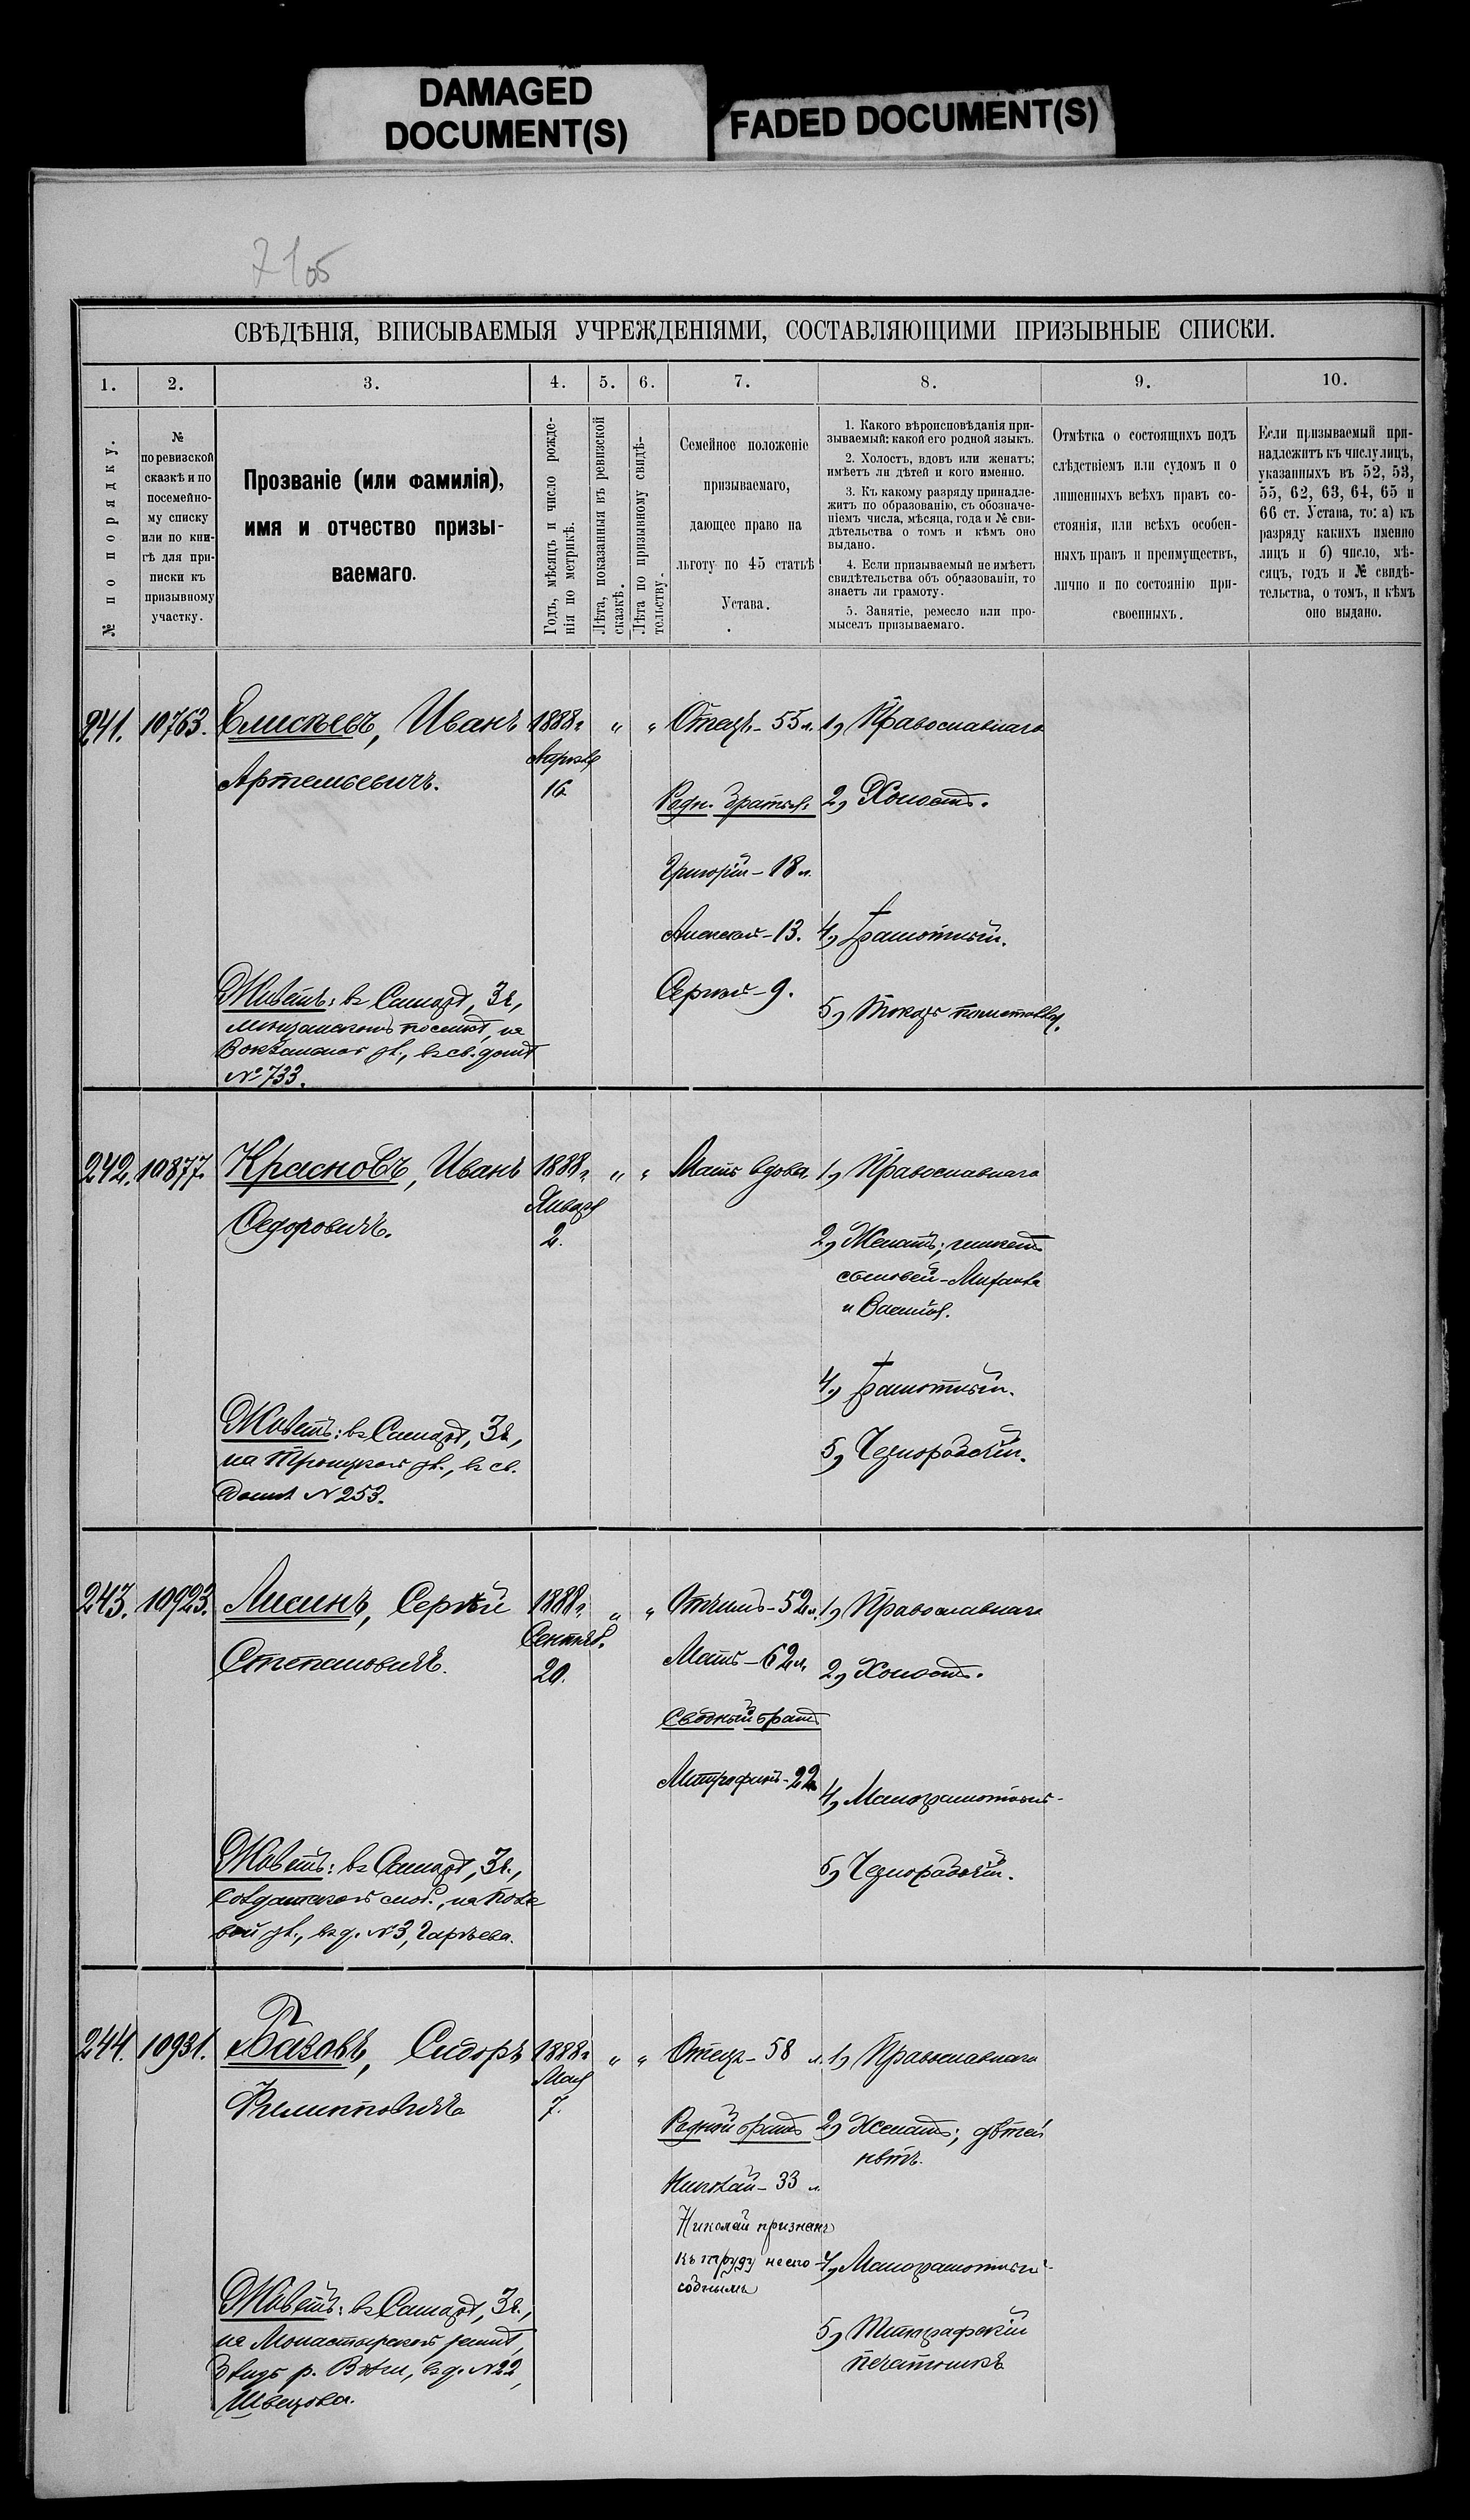 DAMAGED
DOCUMENT(S)
FADED DOCUMENT(S)
7105
СВѢДѢНІЯ, ВПИСЫВАЕМЫЯ УЧРЕЖДЕНІЯМИ, СОСТАВЛЯЮЩИМИ ПРИЗЫВНЫЕ СПИСКИ.
1.
2.
3.
4.
5.
6.
7.
8.
9.
10.
№ по порядку.
№
по ревизской
сказкѣ и по
посемейно-
му списку
или по кни-
гѣ для при-
писки къ
призывному
участку.
Прозваніе (или фамилія),
имя и отчество призы-
ваемаго.
Годъ, мѣсяцъ и число рожде-
нія по метрикѣ.
Лѣта, показанныя въ ревизской
сказкѣ.
Лѣта по призывному свидѣ-
тельству.
Семейное положеніе
призываемаго,
дающее право на
льготу по 45 статьѣ
Устава.
1. Какого вѣроисповѣданія при-
зываемый: какой его родной языкъ.
2. Холостъ, вдовъ или женатъ;
имѣетъ ли дѣтей и кого именно.
3. Къ какому разряду принадле-
житъ по образованію, съ обозначе-
ніемъ числа, мѣсяца, года и № сви-
дѣтельства о томъ и кѣмъ оно
выдано.
4. Если призываемый не имѣетъ
свидѣтельства объ образованіи, то
знаетъ ли грамоту.
5. Занятіе, ремесло или про-
мыселъ призываемаго.
Отмѣтка о состоящихъ подъ
слѣдствіемъ или судомъ и о
лишенныхъ всѣхъ правъ со-
стоянія, или всѣхъ особен-
ныхъ правъ и преимуществъ,
лично и по состоянію при-
своенныхъ.
Если призываемый при-
надлежитъ къ числу лицъ,
указанныхъ въ 52, 53,
55, 62, 63, 64, 65 и
66 ст. Устава, то: а) къ
разряду какихъ именно
лицъ и б) число, мѣ-
сяцъ, годъ и № свидѣ-
тельства, о томъ, и кѣмъ
оно выдано.
241. 10763. Елисѣевъ, Иванъ 1888г. „ „ Отецъ - 55 л. 1, Православнаго
Артемьевичъ. Апрѣля
16.
Родн. братья: 2, Холостъ.
Григорій - 18 л.
Алексѣй - 13. 4, Грамотный.
Сергѣй - 9.
5, Токарь по металл.
Живетъ: въ Самарѣ, 3 ч.,
Мещанскомъ поселкѣ, на
Вокзальной ул., въ св. домѣ
№ 733.
242. 10877. Красновъ, Иванъ 1888г. „ „ Мать вдова. 1, Православнаго
Ѳедоровичъ. Января
2.
2, Женатъ; имѣетъ
сыновей - Михаила
и Василія.
4, Грамотный.
5, Чернорабочій.
Живетъ: въ Самарѣ, 3 ч.,
на Троицкой ул., въ св.
домѣ № 253.
243. 10923. Лисинъ, Сергѣй 1888г. „ „ Отчимъ - 52 л. 1, Православнаго
Степановичъ. Сентяб.
20.
Мать - 62 л. 2, Холостъ.
Сводный братъ
Митрофанъ - 22
4, Малограмотный
5, Чернорабочій.
Живетъ: въ Самарѣ, 3 ч.,
Солдатской слоб., на Поле
вой ул., въ д. № 3, Гарѣева.
244. 10931. Базовъ, Сидоръ 1888г. „ „ Отецъ - 58 л. 1, Православнаго
Филипповичъ Мая
7.
Родной братъ 2, Женатъ; дѣтей
нѣтъ.
Николай - 33 л.
Николай признанъ
къ труду неспо- 4, Малограмотный
собнымъ
5, Типографскій
печатникъ
Живетъ: въ Самарѣ, 3 ч.,
на Монастырской улицѣ,
въ д. № 22,
Швецова.